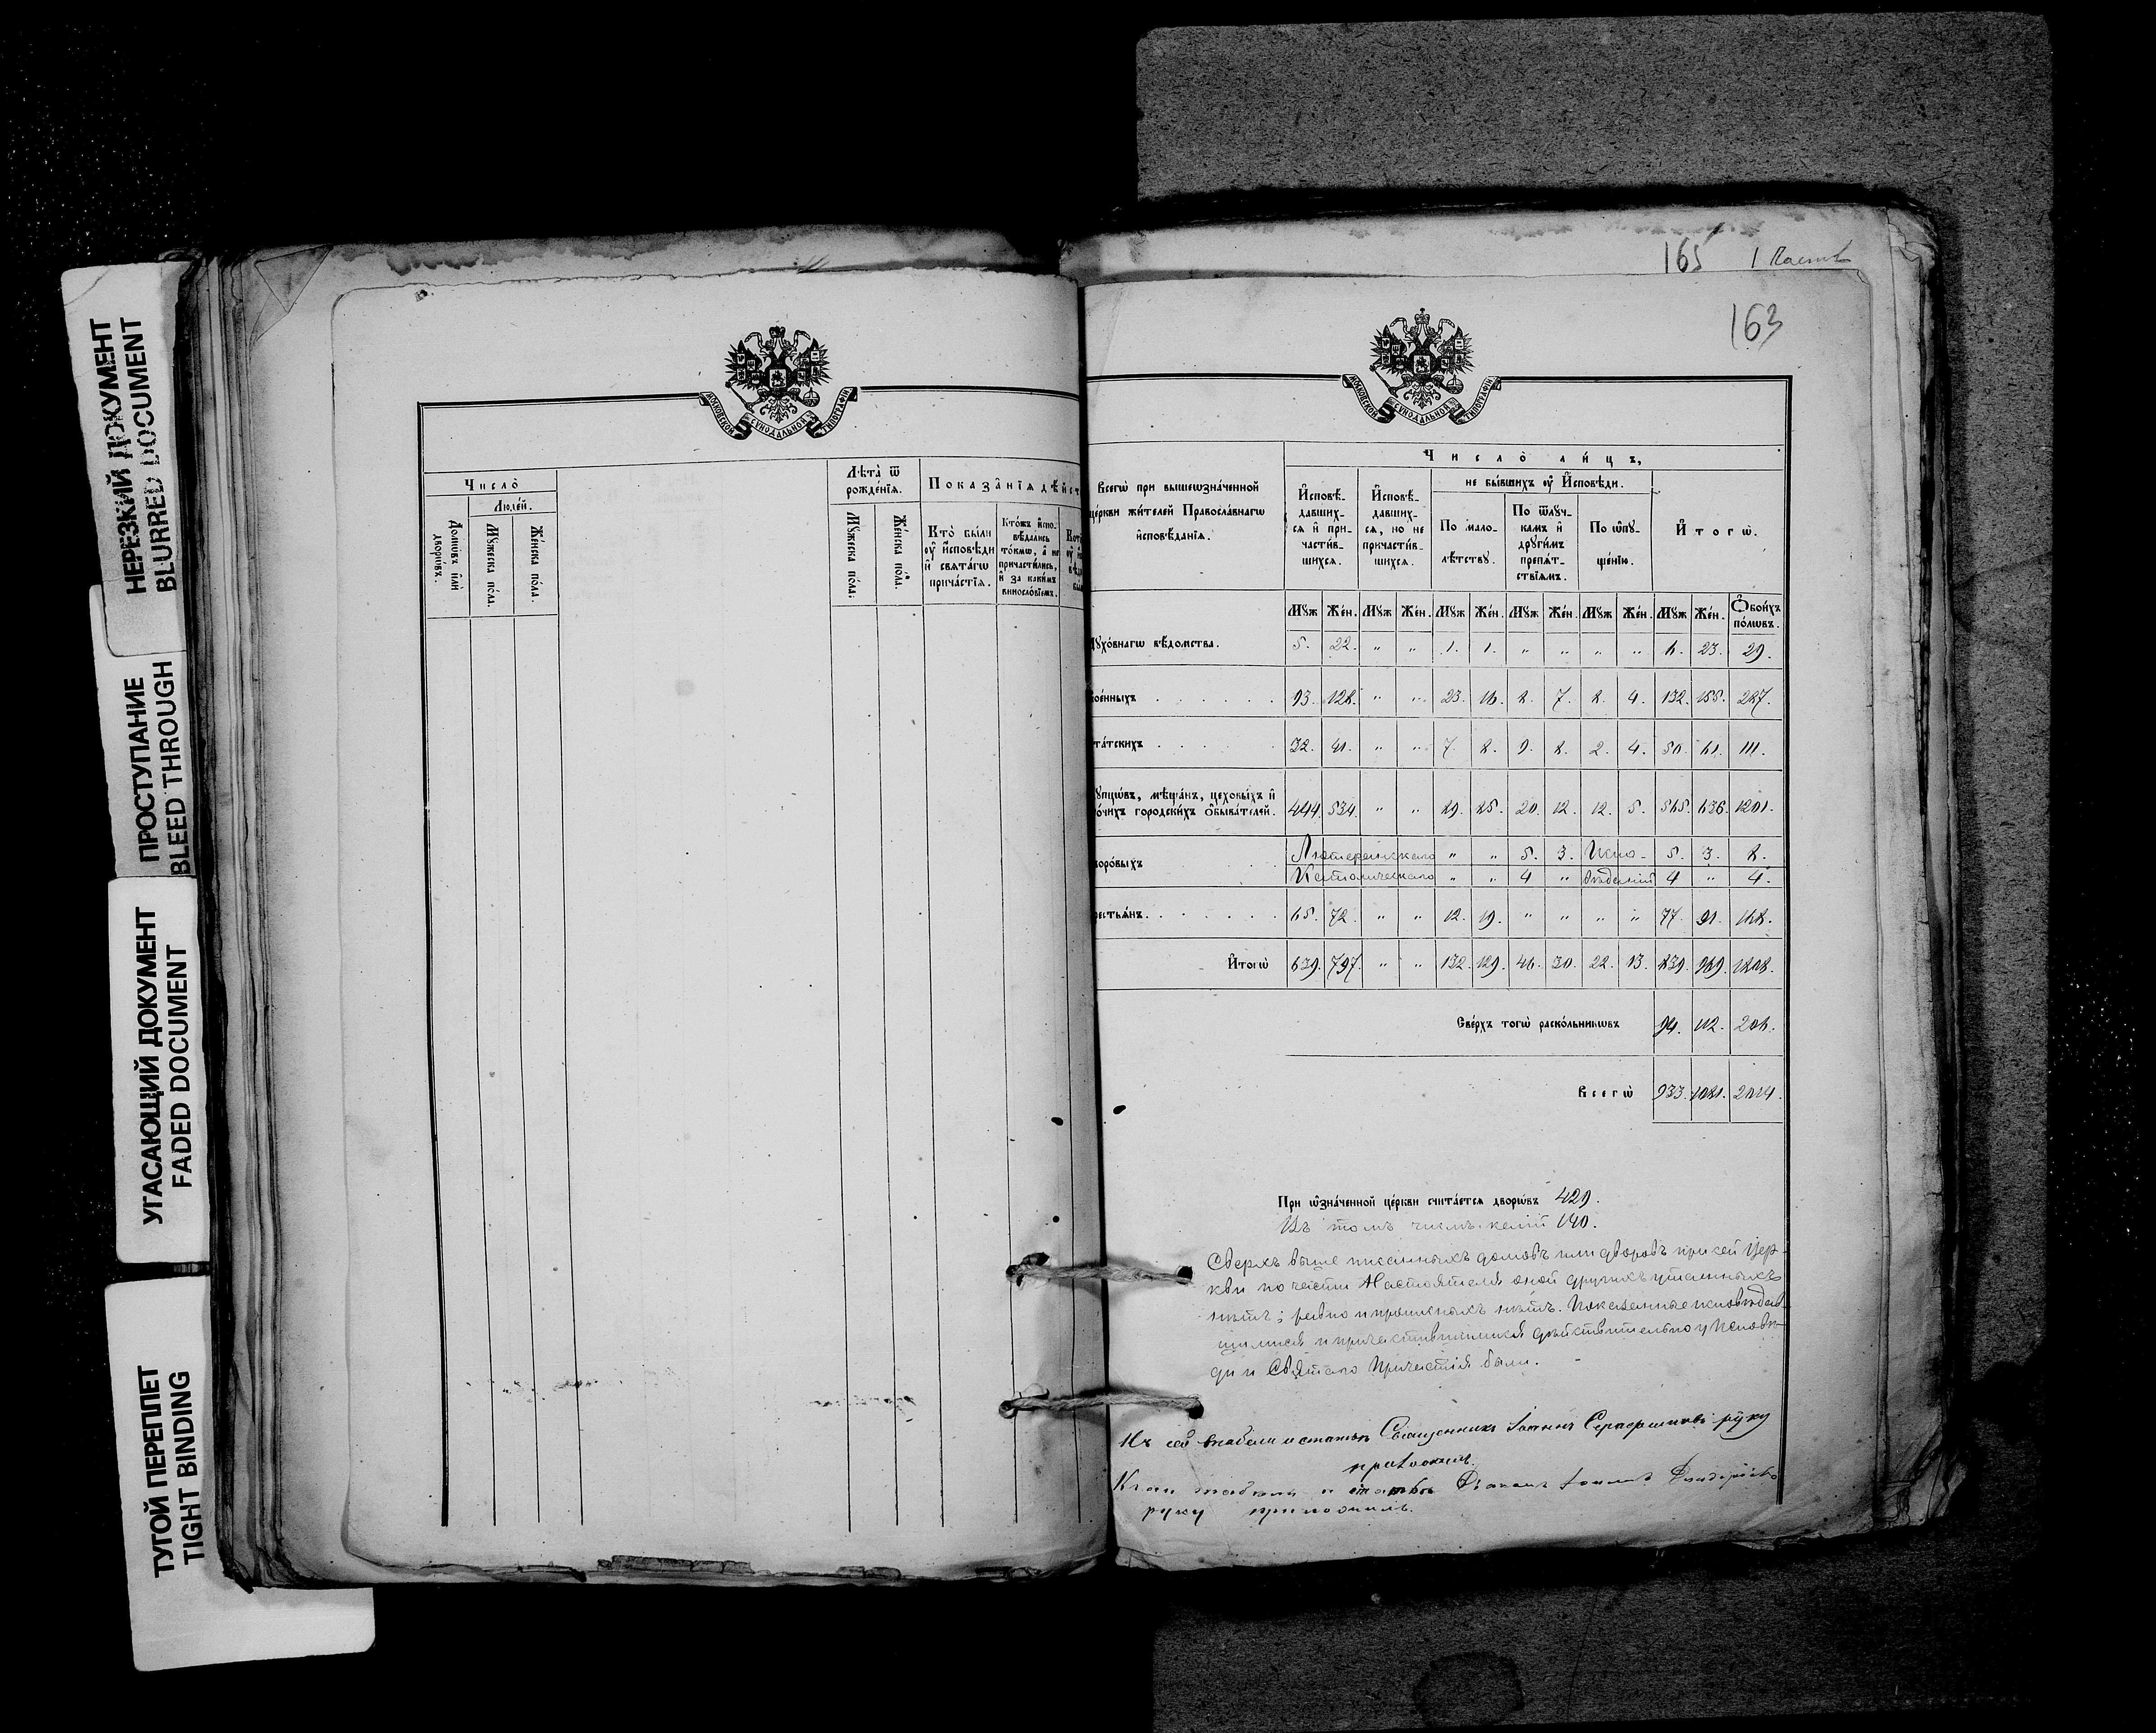 НЕРЕЗКИЙ ДОКУМЕНТ
BLURRED DOCUMENT
ПРОСТУПАНИЕ
BLEED THROUGH
УГАСАЮЩИЙ ДОКУМЕНТ
FADED DOCUMENT
ТУГОЙ ПЕРЕПЛЕТ
TIGHT BINDING
МОСКОВСКОЙ СѴНОДАЛЬНОЙ ТИПОГРАФІИ
Число̀
Люде́й.
Домѡ́въ и҆лѝ дворѡ́въ.
Мꙋ́жеска по́ла.
Же́нска по́ла.
Лѣ́та ѿ рожде́нїѧ.
Мꙋ́жеска по́ла.
Же́нска по́ла.
Показа̑нїѧ дѣ́йст
Кто̀ бы́ли
ᲂу҆ и҆́сповѣди
и҆ свѧта́гѡ
прича́стїѧ.
Кто́жъ и҆спо-
вѣ́дались
то́кмѡ, а҆ не
причасти́лись,
и҆ за каки́мъ
виносло́вїемъ.
165
163
МОСКОВСКОЙ СѴНОДАЛЬНОЙ ТИПОГРАФІИ
Всегѡ̀ при вышеѡзна́ченной
це́ркви жи́телей Правосла́внагѡ
и҆сповѣ́данїѧ.
Число̀ ли́цъ,
И҆сповѣ́-
давших-
сѧ и҆ при-
части́в-
шихсѧ.
И҆сповѣ́-
давших-
сѧ, но не
причасти́в-
шихсѧ.
не бы́вшихъ ᲂу҆ И҆́сповѣди.
По мало-
лѣ́тствꙋ.
По ѿлꙋ́ч-
камъ и҆
други́мъ
препѧ́т-
ствїѧмъ.
По ѡ҆пꙋ-
ще́нїю.
И҆того̀.
Мꙋж Же́н. Мꙋж Же́н. Мꙋж Же́н. Мꙋж Же́н. Мꙋж Же́н. Мꙋж Же́н. Ѻ҆бои́хъ по́лѡвъ.
Дꙋхо́внагѡ вѣ́домства. 5. 22. " " 1. 1. " " " " 6. 23. 29.
ое́нныхъ 93. 128. " " 23. 16. 8. 7. 8. 4. 132. 155. 287.
та́тскихъ 32. 41. " " 7. 8. 9. 8. 2. 4. 50. 61. 111.
ꙋпцѡ́въ, мѣща́нъ, цеховы́хъ и҆
о́чихъ городски́хъ ѻ҆быва́телей. 444. 534. " " 89. 85. 20. 12. 12. 5. 565. 636. 1201.
воро́выхъ Лютеранскаго " " 5. 3. Испо- 5. 3. 8.
Католическаго " " 4 " вѣданій 4 " 4.
естьѧ́нъ. 65. 72. " " 12. 19. " " " " 77. 91. 168.
И҆того̀ 639. 797. " " 132. 129. 46. 30. 22. 13. 839. 969. 1808.
Све́рхъ тогѡ̀ раско́льникѡвъ 94. 112. 206.
Всегѡ̀ 933. 1081. 2014.
При ѡ҆зна́ченной це́ркви счита́етсѧ дворѡ́въ 429.
Въ томъ числѣ келій 140.
Сверхъ выше писанныхъ домовъ или дворовъ при сей Цер-
кви по части Настоятеля оной другихъ утаенныхъ
нѣтъ; равно и прописныхъ нѣтъ. Показанные исповѣдав-
шимися и причастившимися дѣйствительно у Исповѣ-
ди и Святаго Причастія были.
Къ сей табели и статьѣ Священникъ Іоаннъ Серафимовъ руку
приложилъ.
К сей табели и статьѣ Діаконъ
руку приложилъ.